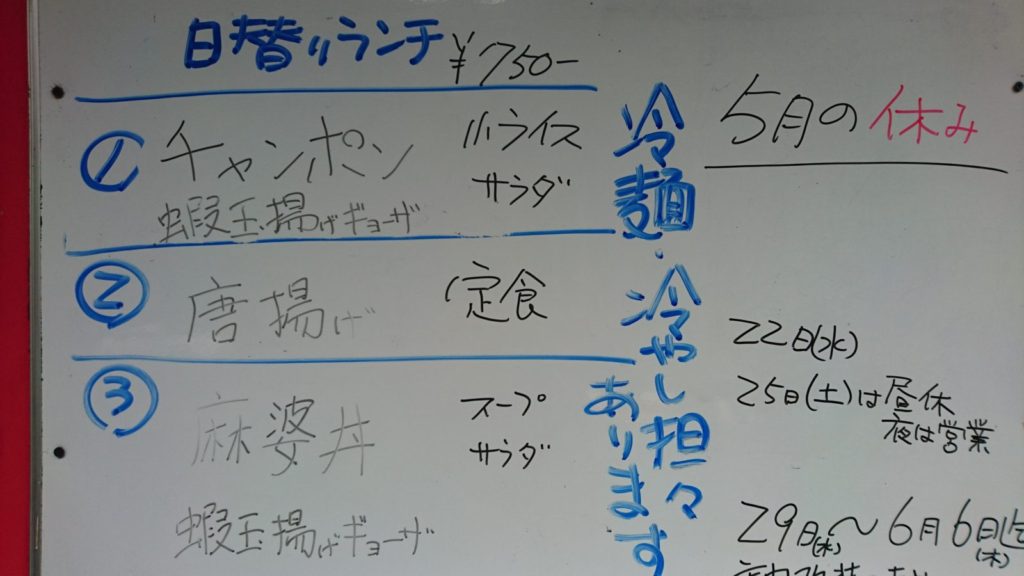 日替りランチ ¥750-
① チャンポン 小ライス
サラダ
蝦玉揚げギョーザ
② 唐揚げ 定食
③ 麻婆丼 スープ
サラダ
蝦玉揚げギョーザ
冷麺・冷やし担々
あります
5月の休み
22日(水)
25日(土)は昼休
夜は営業
29日(水)〜6月6日迄
(木)